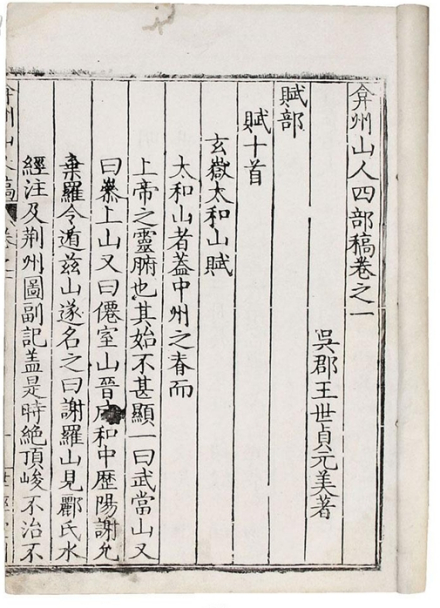 弇州山人四部稿卷之一
吳郡王世貞元美著
賦部
賦十首
玄嶽太和山賦
太和山者蓋中州之脊而
上帝之靈腑也其始不甚顯一曰武當山又
曰嵾上山又曰僊室山晉和中歷陽謝允
棄羅令遁茲山遂名之曰謝羅山見酈氏水
經注及荆州圖副記蓋是時絶頂峻不治不